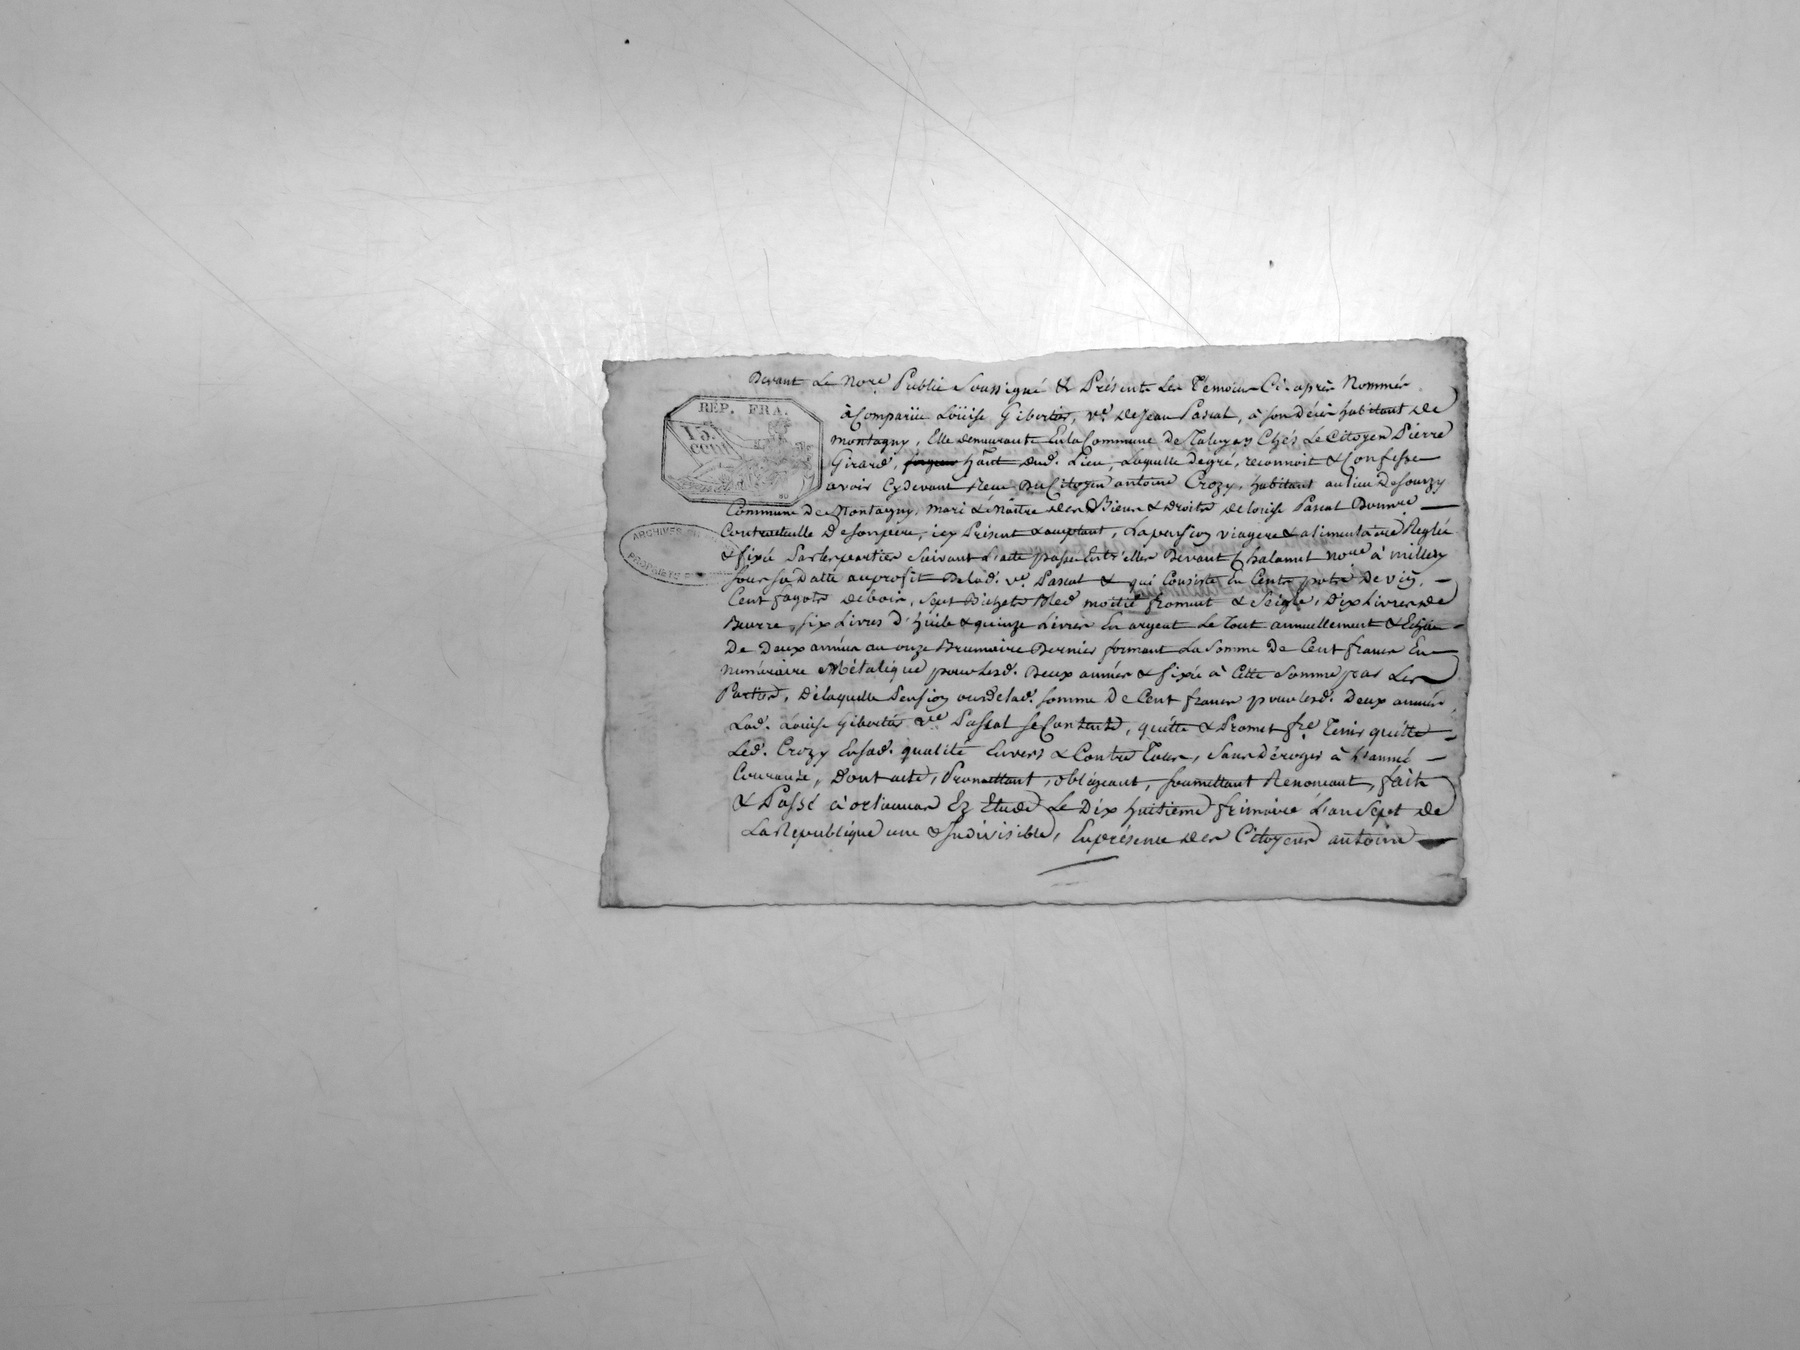 Devant Le No.re Public Soussigné & Présent Les Témoins Ci-après Nommés
RÉP. FRA.
15. cent
à Comparüe Loüise Gibertés, v.e de Jean Pascal, à son décès habitant de
Montagny, Elle demeurante En la Commune de Taluyers Chés Le Citoyen Pierre
Girard, haut dud. Lieu, Laquelle de gré, reconnoit & Confesse
avoir Cydevant Receu Du Citoyen antoine Crozy, habitant au lieu De Sourzy
Commune De Montagny, mari & Maître des Biens & droits de louise Pascal Donn.re
Contractuelle De son père, icy Présent & acceptant, La pension viagere & alimentaire Reglée
& fixée Par les parties Suivant L'acte passé Entr'elles Devant Chalamel No.re à millery
Sous sa Datte au profit De lad. v.e Pascal & qui Consiste En Cents pots De vin,
Cent fagots de bois, Sept Bichets Bled moitié froment & Seigle, Dix Livres de
Beurre, six Livres d'huile & quinze Livres En argent Le Tout annuellement & Echüe
De Deux années au onze Brumaire Dernier formant La Somme De Cent francs En
numéraire Métalique pour lesd. Deux années & fixée à Cette Somme par Les
Parties, De laquelle Pension ou de lad. Somme De Cent francs pour lesd. Deux années
Lad. Loüise Gibertés v.e Pascal Se Contente, quitte & Promet f.re Tenir quitte
Led. Crozy En sad. qualité Envers & Contre Tous, Sans Déroger à L'année
Courante, Dont acte, Promettant, obligeant, soumettant Renonçant, fait
& Passé à orlienas Ez Etude Le Dix huitieme frimaire L'an Sept de
La Republique une & Indivisible, En présence des Citoyens antoine
ARCHIVES
PROPRIÉTÉ